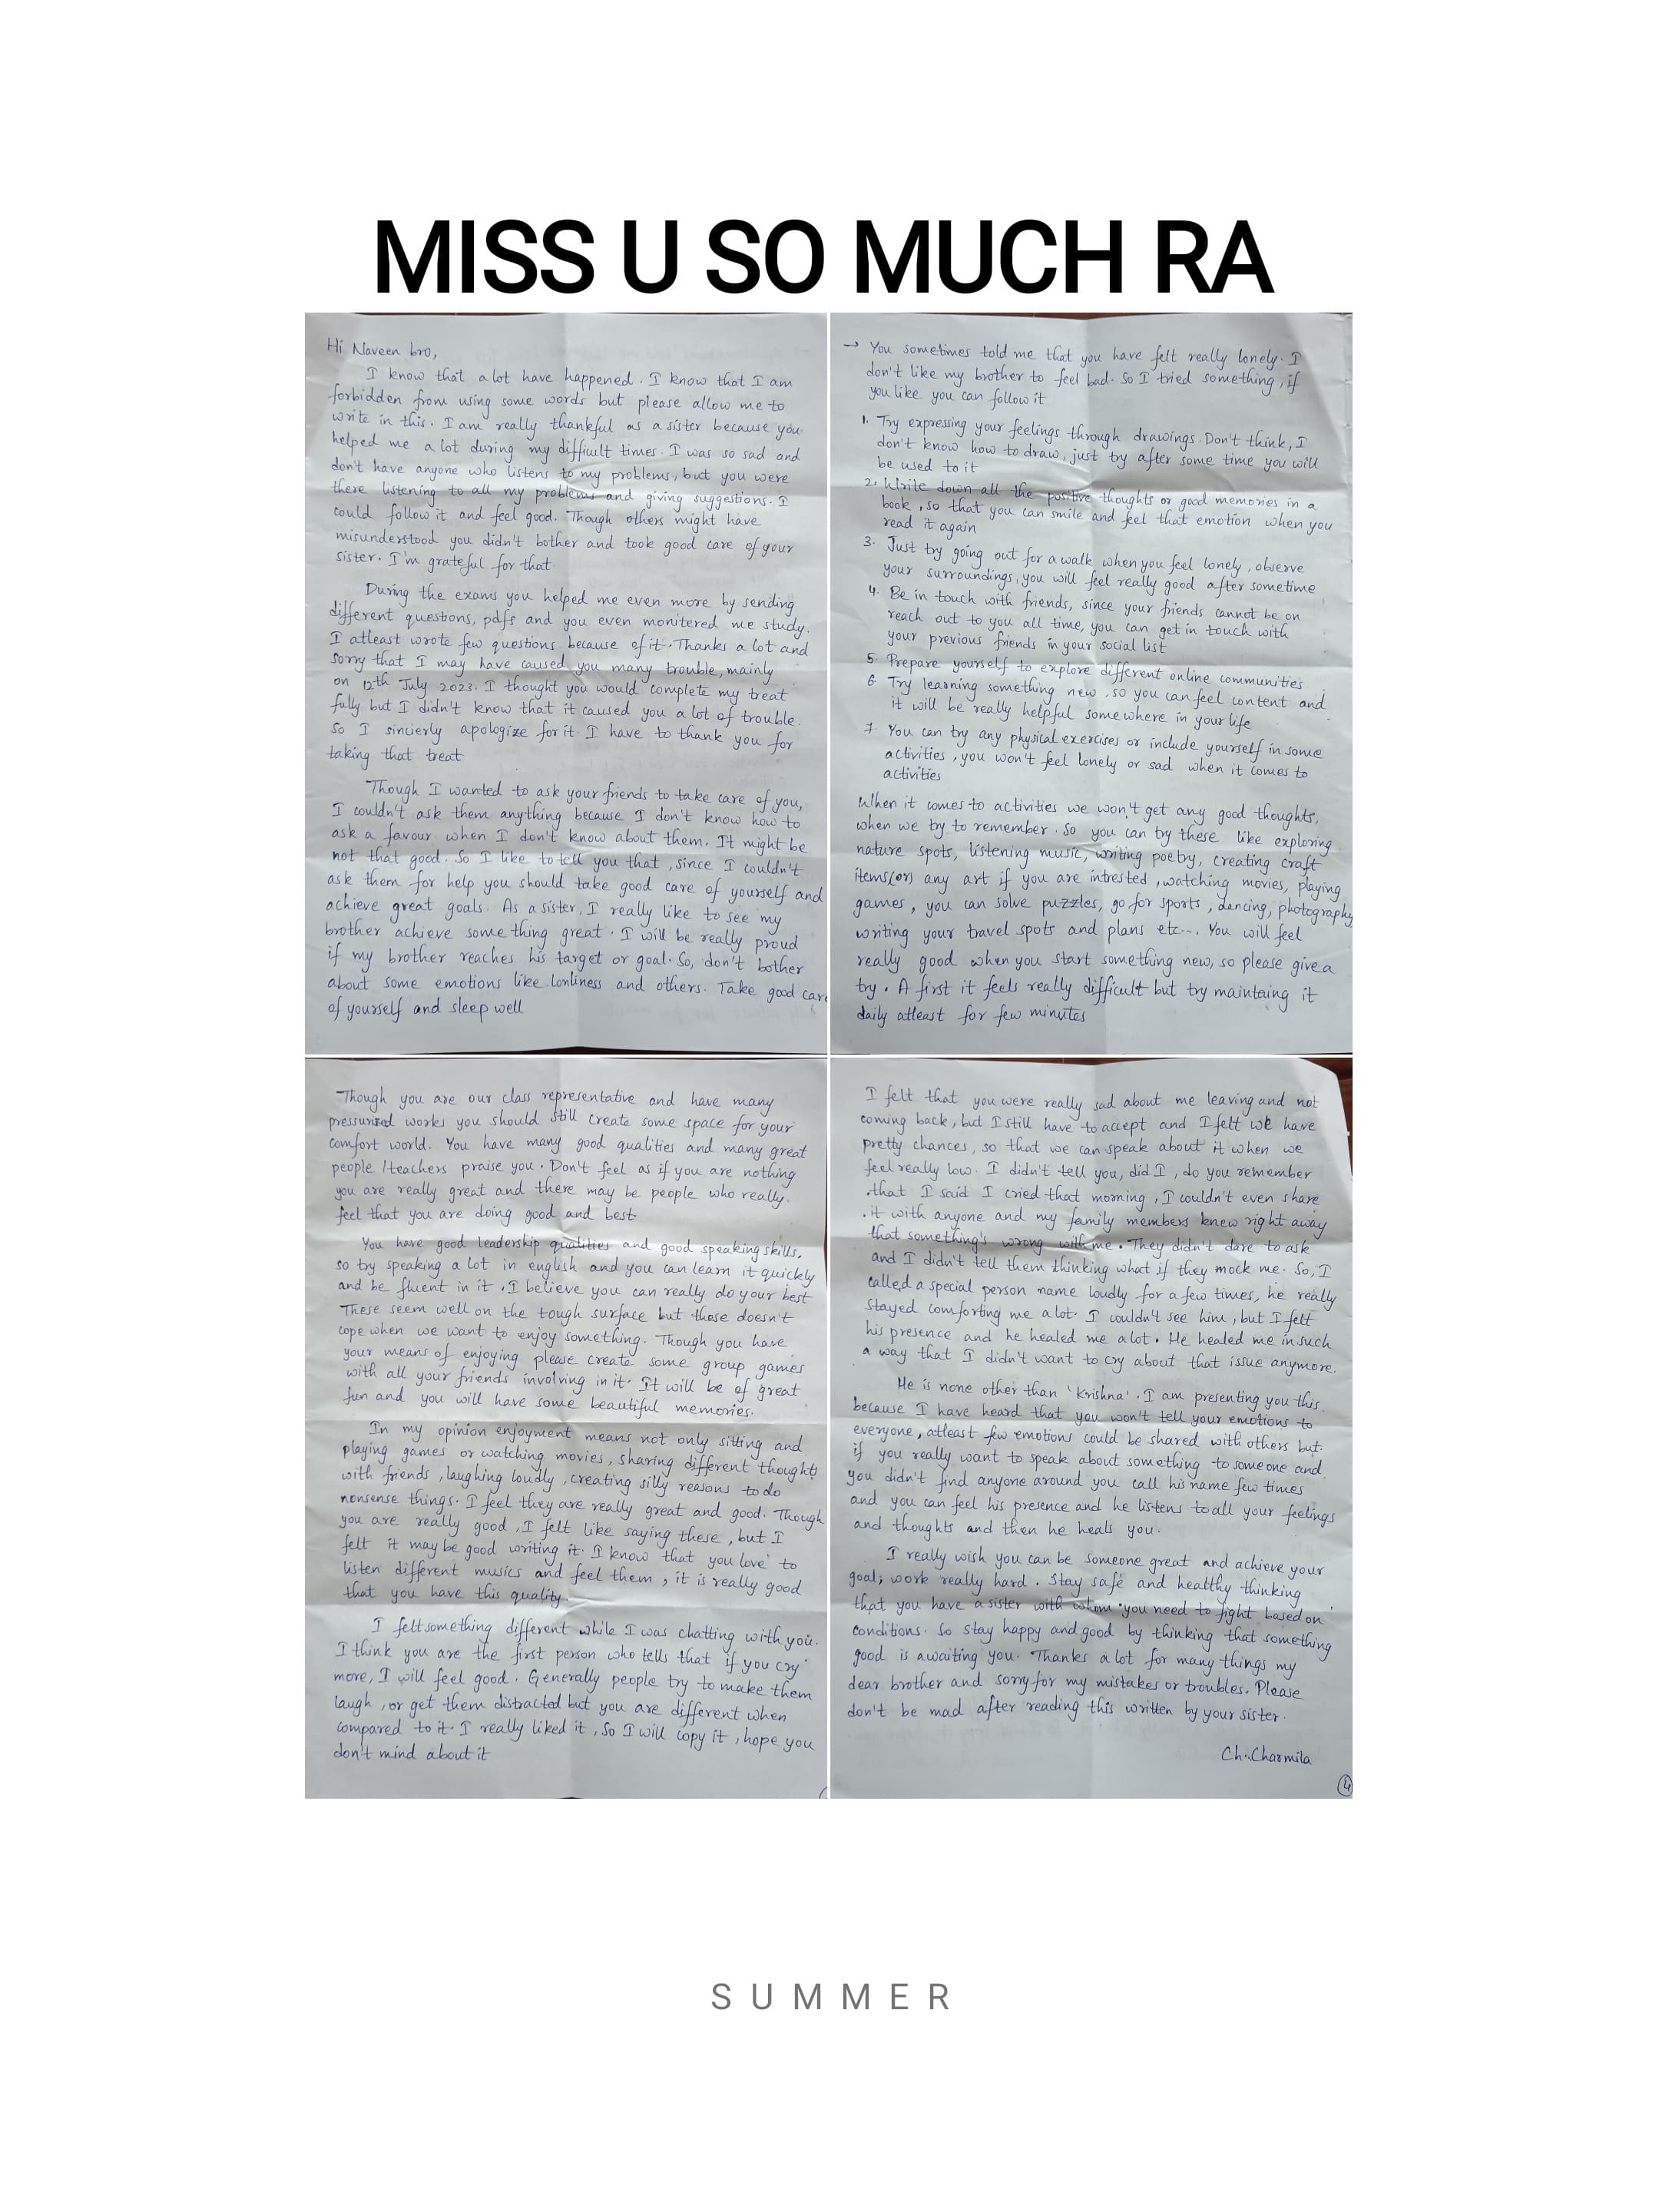 MISS U SO MUCH RA
Hi Naveen bro,
I know that a lot have happened. I know that I am
forbidden from using some words but please allow me to
write in this. I am really thankful as a sister because you
helped me a lot during my difficult times. I was so sad and
don't have anyone who listens to my problems, but you were
there listening to all my problems and giving suggestions. I
could follow it and feel good. Though others might have
misunderstood you didn't bother and took good care of your
sister. I'm grateful for that
During the exams you helped me even more by sending
different questions, pdfs and you even monitered me study.
I atleast wrote few questions because of it. Thanks a lot and
sorry that I may have caused you many trouble, mainly
on 12th July 2023. I thought you would complete my treat
fully but I didn't know that it caused you a lot of trouble.
So I sincierly apologize for it. I have to thank you for
taking that treat
Though I wanted to ask your friends to take care of you,
I couldn't ask them anything because I don't know how to
ask a favour when I don't know about them. It might be
not that good. So I like to tell you that, since I couldn't
ask them for help you should take good care of yourself and
achieve great goals. As a sister, I really like to see my
brother achieve something great. I will be really proud
if my brother reaches his target or goal. So, don't bother
about some emotions like lonliness and others. Take good care
of yourself and sleep well
→ You sometimes told me that you have felt really lonely. I
don't like my brother to feel bad. So I tried something, if
you like you can follow it
1. Try expressing your feelings through drawings. Don't think, I
don't know how to draw, just try after some time you will
be used to it
2. Write down all the positive thoughts or good memories in a
book, so that you can smile and feel that emotion when you
read it again
3. Just try going out for a walk when you feel lonely, observe
your surroundings, you will feel really good after sometime
4. Be in touch with friends, since your friends cannot be on
reach out to you all time, you can get in touch with
your previous friends in your social list
5. Prepare yourself to explore different online communities.
6 Try learning something new, so you can feel content and
it will be really helpful somewhere in your life
7 You can try any physical exercises or include yourself in some
activities, you won't feel lonely or sad when it comes to
activities
When it comes to activities we won't get any good thoughts,
when we try to remember. So you can try these like exploring
nature spots, listening music, writing poetry, creating craft
items(or) any art if you are intrested, watching movies, playing
games, you can solve puzzles, go for sports, dancing, photography
writing your travel spots and plans etc.... You will feel
really good when you start something new, so please give a
try. A first it feels really difficult but try maintaing it
daily atleast for few minutes
Though you are our class representative and have many
pressurized works you should still create some space for your
comfort world. You have many good qualities and many great
people/teachers praise you. Don't feel as if you are nothing
you are really great and there may be people who really
feel that you are doing good and best
You have good leadership qualities and good speaking skills,
so try speaking a lot in english and you can learn it quickly
and be fluent in it. I believe you can really do your best
These seem well on the tough surface but those doesn't
cope when we want to enjoy something. Though you have
your means of enjoying please create some group games
with all your friends involving in it. It will be of great
fun and you will have some beautiful memories.
In my opinion enjoyment means not only sitting and
playing games or watching movies, sharing different thoughts
with friends, laughing loudly, creating silly reasons to do
nonsense things. I feel they are really great and good. Though
you are really good, I felt like saying these, but I
felt it may be good writing it. I know that you love to
listen different musics and feel them, it is really good
that you have this quality
I felt something different while I was chatting with you.
I think you are the first person who tells that if you cry
more, I will feel good. Generally people try to make them
laugh, or get them distracted but you are different when
compared to it. I really liked it, So I will copy it, hope you
don't mind about it
I felt that you were really sad about me leaving and not
coming back, but I still have to accept and I felt we have
pretty chances, so that we can speak about it when we
feel really low. I didn't tell you, did I, do you remember
that I said I cried that morning, I couldn't even share
it with anyone and my family members knew right away
that something's wrong with me. They didn't dare to ask
and I didn't tell them thinking what if they mock me. So, I
called a special person name loudly for a few times, he really
stayed comforting me a lot. I couldn't see him, but I felt
his presence and he healed me a lot. He healed me in such
a way that I didn't want to cry about that issue anymore.
He is none other than 'Krishna'. I am presenting you this
because I have heard that you won't tell your emotions to
everyone, atleast few emotions could be shared with others but
if you really want to speak about something to someone and
you didn't find anyone around you call his name few times
and you can feel his presence and he listens to all your feelings
and thoughts and then he heals you.
I really wish you can be someone great and achieve your
goal; work really hard. Stay safe and healthy thinking
that you have a sister with whom you need to fight based on
conditions. So stay happy and good by thinking that something
good is awaiting you. Thanks a lot for many things my
dear brother and sorry for my mistakes or troubles. Please
don't be mad after reading this written by your sister.
Ch. Charmila
4
SUMMER